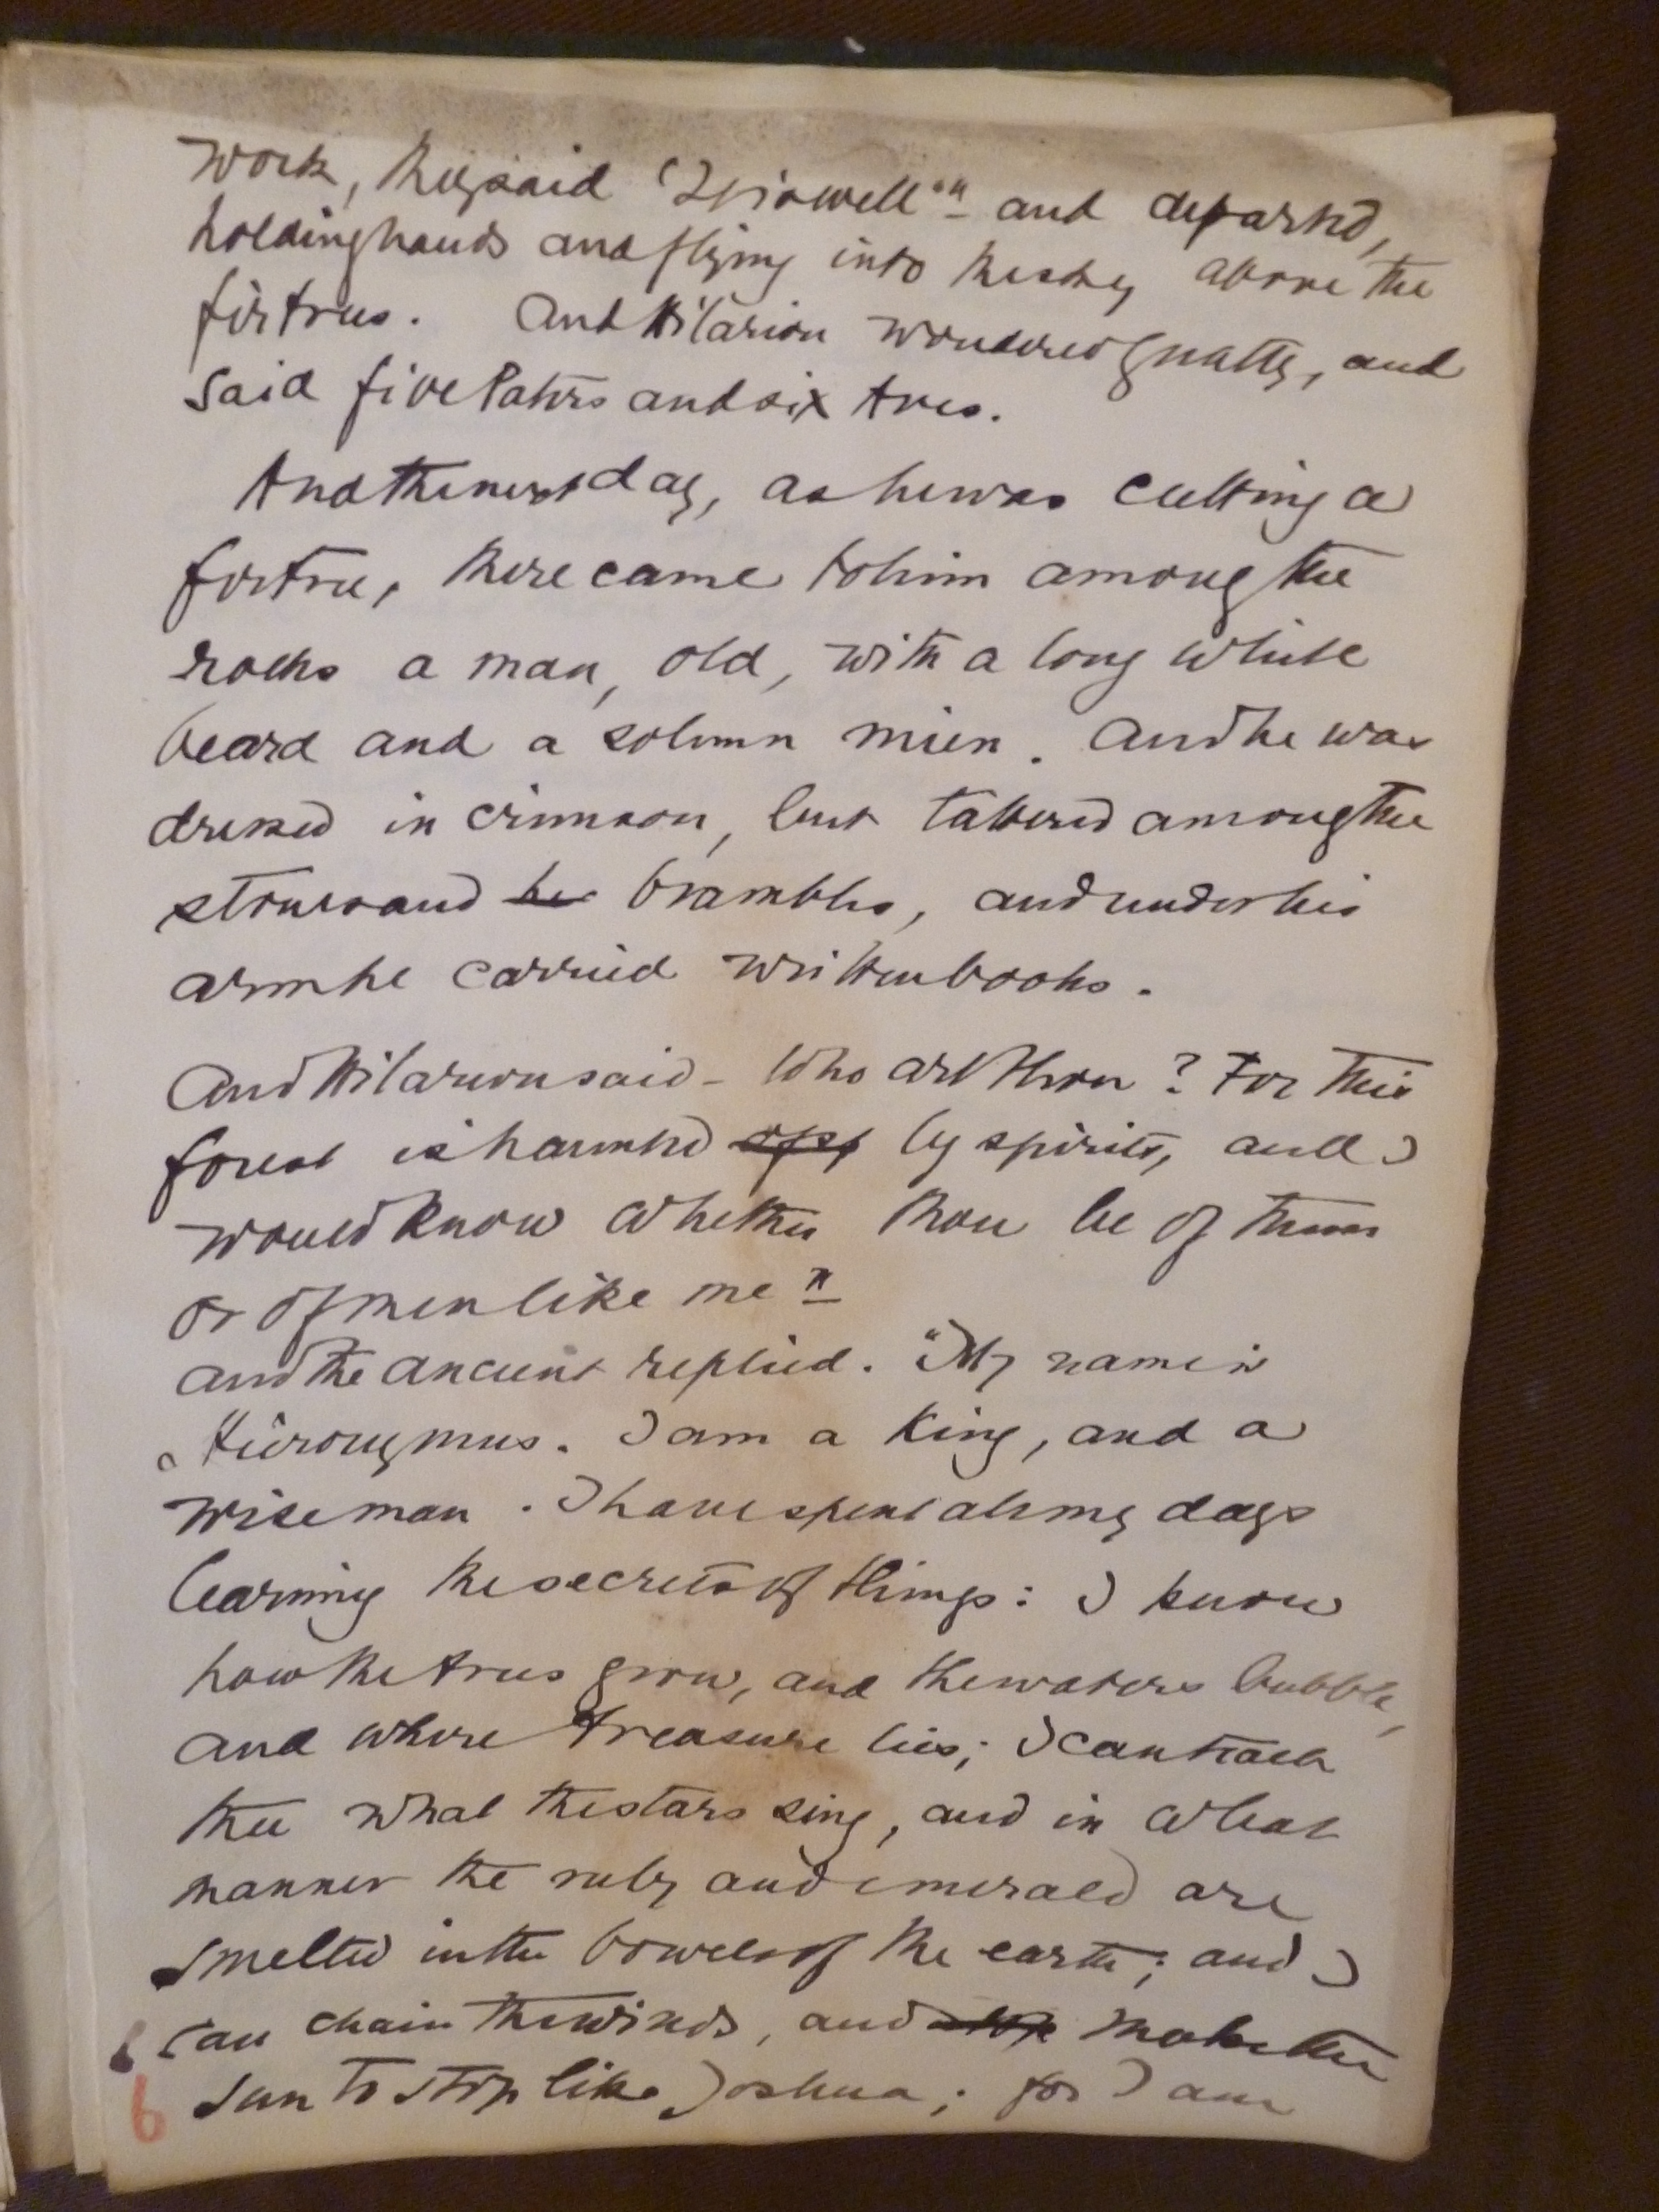 work, they said "It is well" and departed,
holding hands and flying into the sky above the
firtrees. And Hilarion wondered greatly, and
said five Paters and six Aves.
And the next day, as he was cutting a
firtree, there came to him among the
rocks a man, old, with a long white
beard and a solemn mien. And he was
dressed in crimson, but tattered among the
stones and brambles, and under his
arm he carried written books.
And Hilarion said - Who art thou? For this
forest is haunted by spirits, and I
would know whether thou be of them
or of men like me"
and the ancient replied. "My name is
Hieronymus. I am a King, and a
wise man. I have spent all my days
learning the secrets of things: I know
how the trees grow, and the waters bubble,
and where treasure lies; I can teach
thee what the stars sing, and in what
manner the ruby and emerald are
smelted in the bowels of the earth; and I
can chain the winds, and make the
sun to stop like Joshua; for I am
6